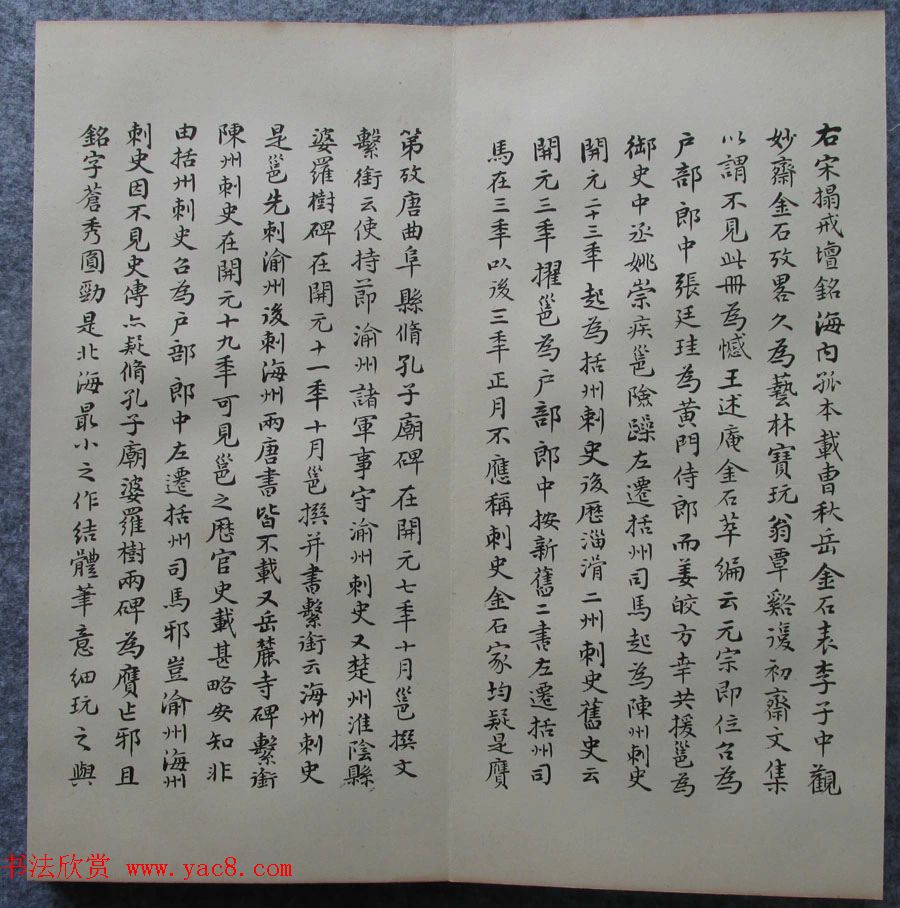 右宋搨戒壇銘海內孤本載曹秋岳金石表李子中觀
妙齋金石攷畧久為藝林寶玩翁覃谿復初齋文集
以謂不見此冊為憾王述庵金石萃編云元宗即位召為
戶部郎中張廷珪為黃門侍郎而姜皎方幸共援邕為
御史中丞姚崇疾邕險躁左遷括州司馬起為陳州刺史
開元二十三秊起為括州刺史後歷淄滑二州刺史舊史云
開元三秊擢邕為戶部郎中按新舊二書左遷括州司
馬在三秊以後三秊正月不應稱刺史金石家均疑是贋
第攷唐曲阜縣脩孔子廟碑在開元七秊十月邕撰文
繫銜云使持節渝州諸軍事守渝州刺史又楚州淮陰縣
婆羅樹碑在開元十一秊十月邕撰并書繫銜云海州刺史
是邕先刺渝州後刺海州兩唐書皆不載又岳麓寺碑繫銜
陳州刺史在開元十九秊可見邕之歷官史載甚略安知非
由括州刺史召為戶部郎中左遷括州司馬邪豈渝州海州
刺史因不見史傳亦疑脩孔子廟婆羅樹兩碑為贋迹邪且
銘字蒼秀圓勁是北海最小之作結體筆意細玩之與
书法欣赏 www.yac8.com